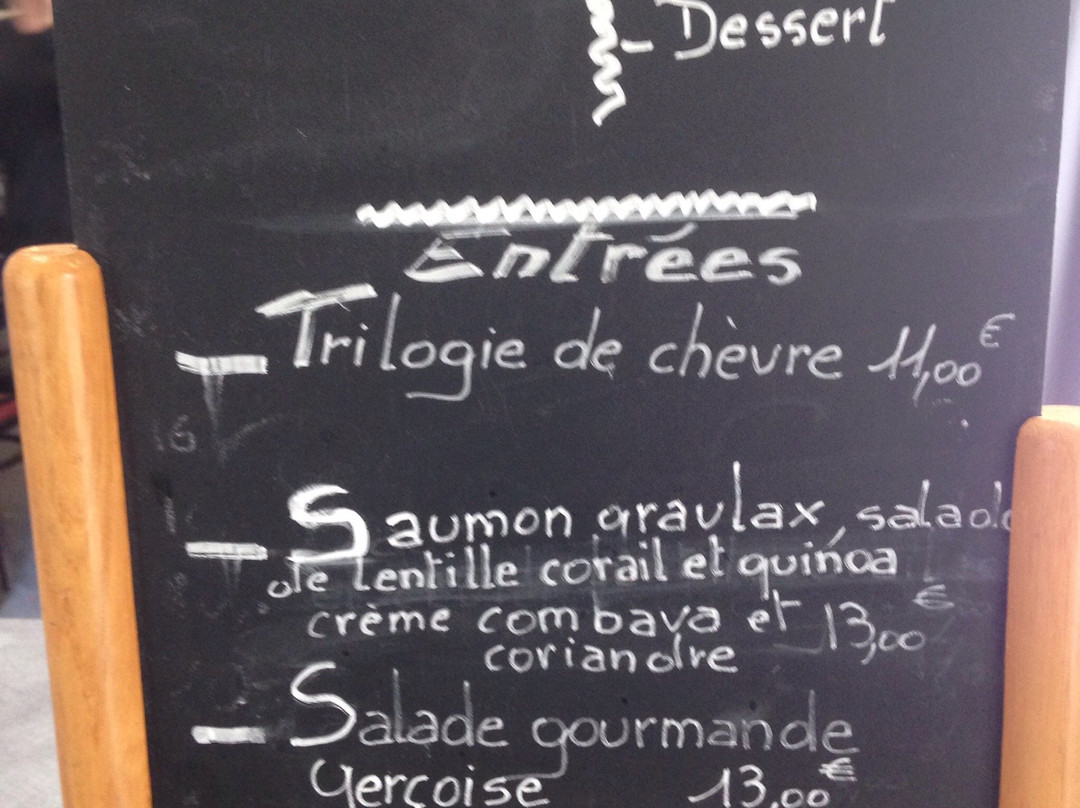 - Dessert
Entrées
- Trilogie de chèvre 11,00€
- Saumon gravlax, salade
de lentille corail et quinoa
crème combava et 13,00€
coriandre
- Salade gourmande
Gerçoise 13,00€